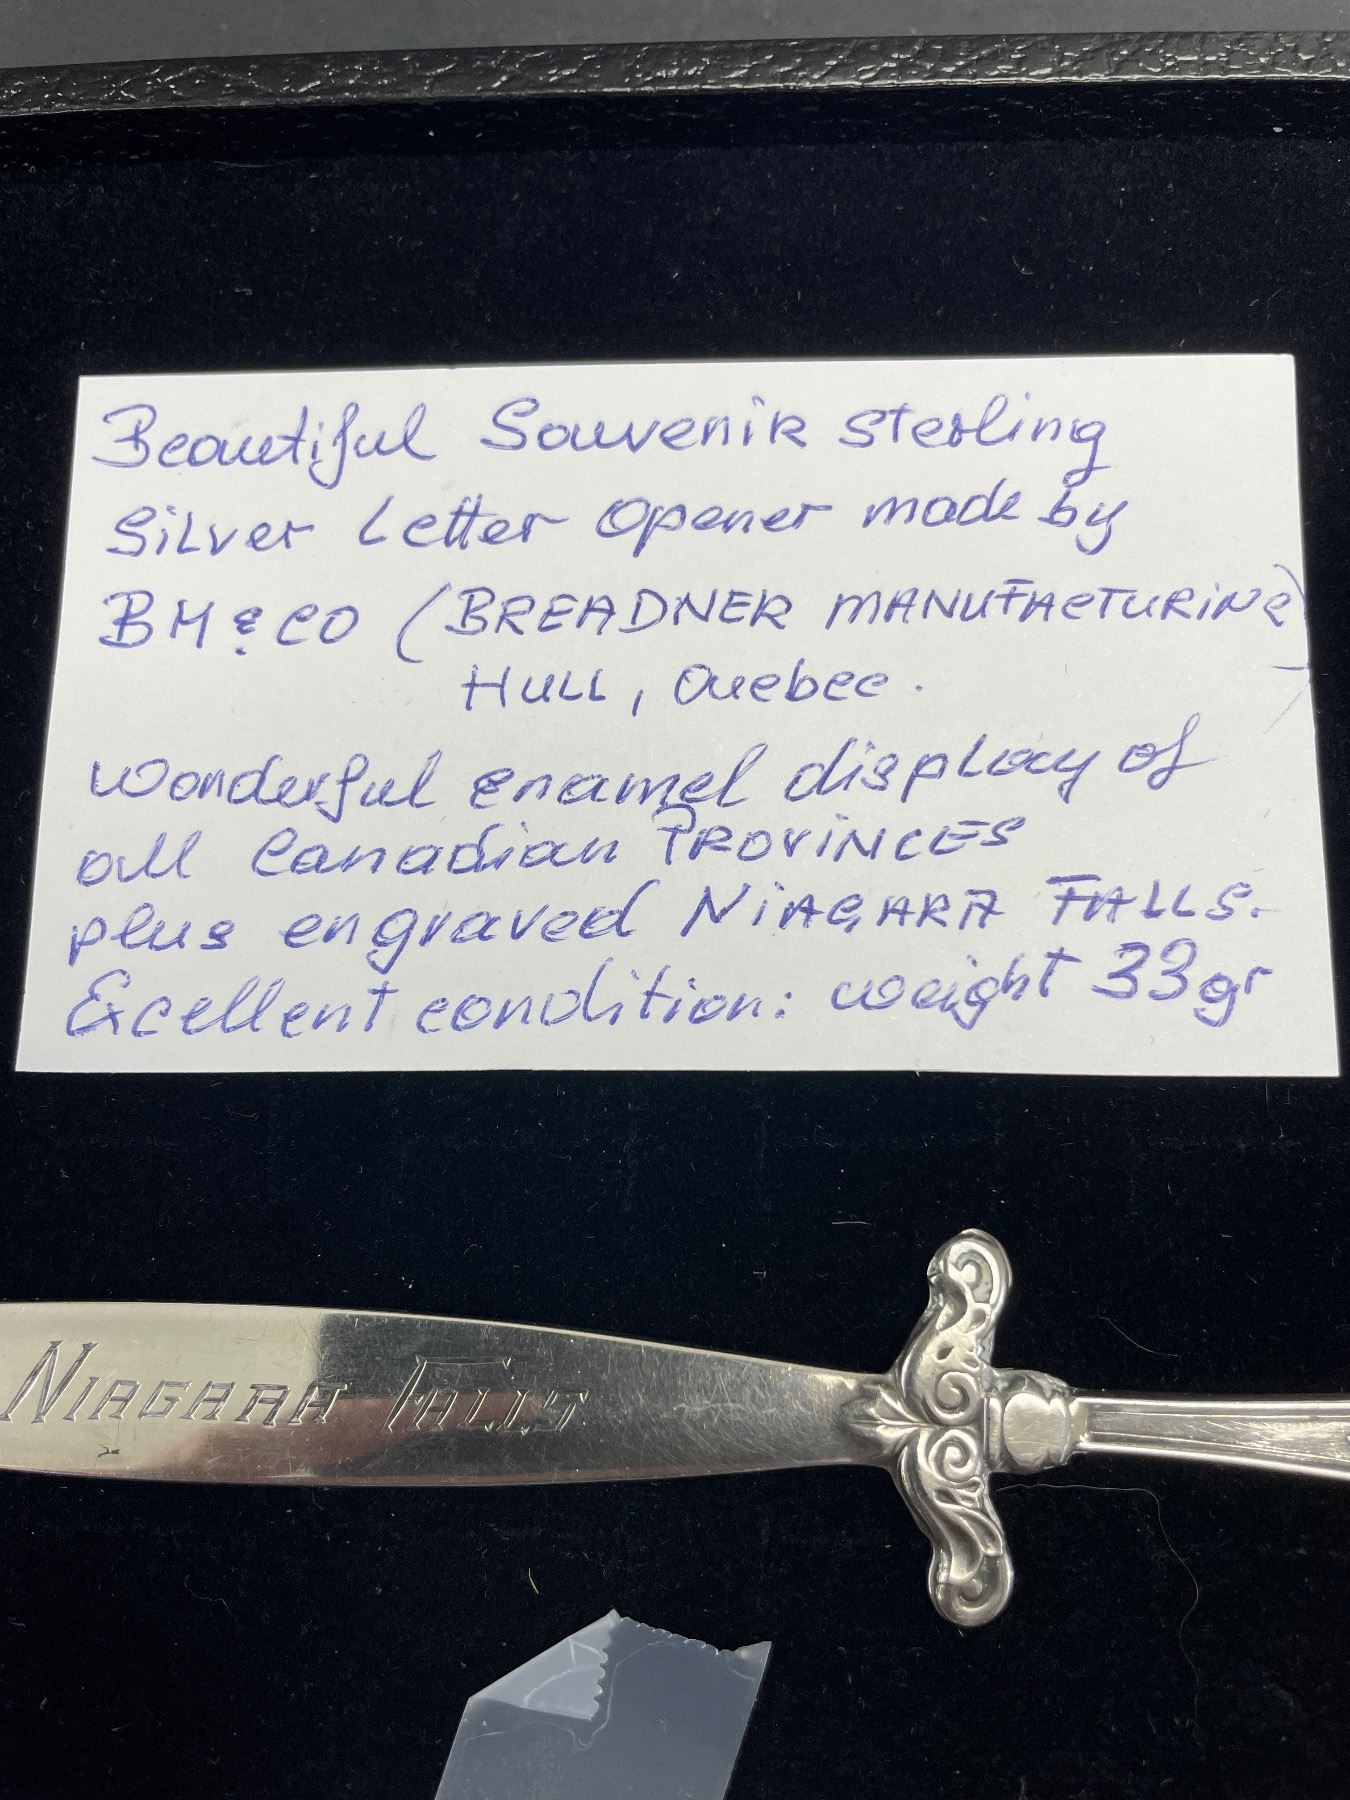 Beautiful Souvenir sterling
Silver Letter Opener made by
BM & CO (BREADNER MANUFACTURING)
HULL, Quebec.
Wonderful enamel display of
all Canadian PROVINCES
plus engraved NIAGARA FALLS.
Excellent condition: weight 33gr
NIAGARA FALLS